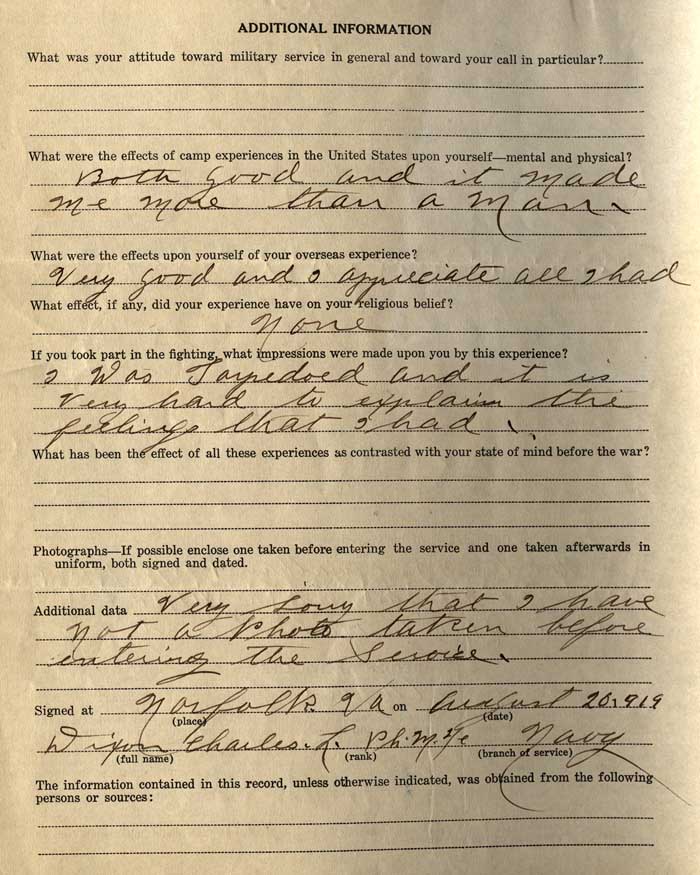 ADDITIONAL INFORMATION
What was your attitude toward military service in general and toward your call in particular?
What were the effects of camp experiences in the United States upon yourself—mental and physical?
Both good and it made
me more than a man.
What were the effects upon yourself of your overseas experience?
Very good and I appreciate all I had
What effect, if any, did your experience have on your religious belief?
None
If you took part in the fighting, what impressions were made upon you by this experience?
I Was Torpedoed and it is
very hard to explain the
feelings that I had.
What has been the effect of all these experiences as contrasted with your state of mind before the war?
Photographs—If possible enclose one taken before entering the service and one taken afterwards in
uniform, both signed and dated.
Additional data Very sorry that I have
not a photo taken before
entering the service.
Signed at Norfolk Va on August 20, 1919
(place) (date)
Dixon Charles. L. Ph.M. Navy
(full name) (rank) (branch of service)
The information contained in this record, unless otherwise indicated, was obtained from the following
persons or sources: